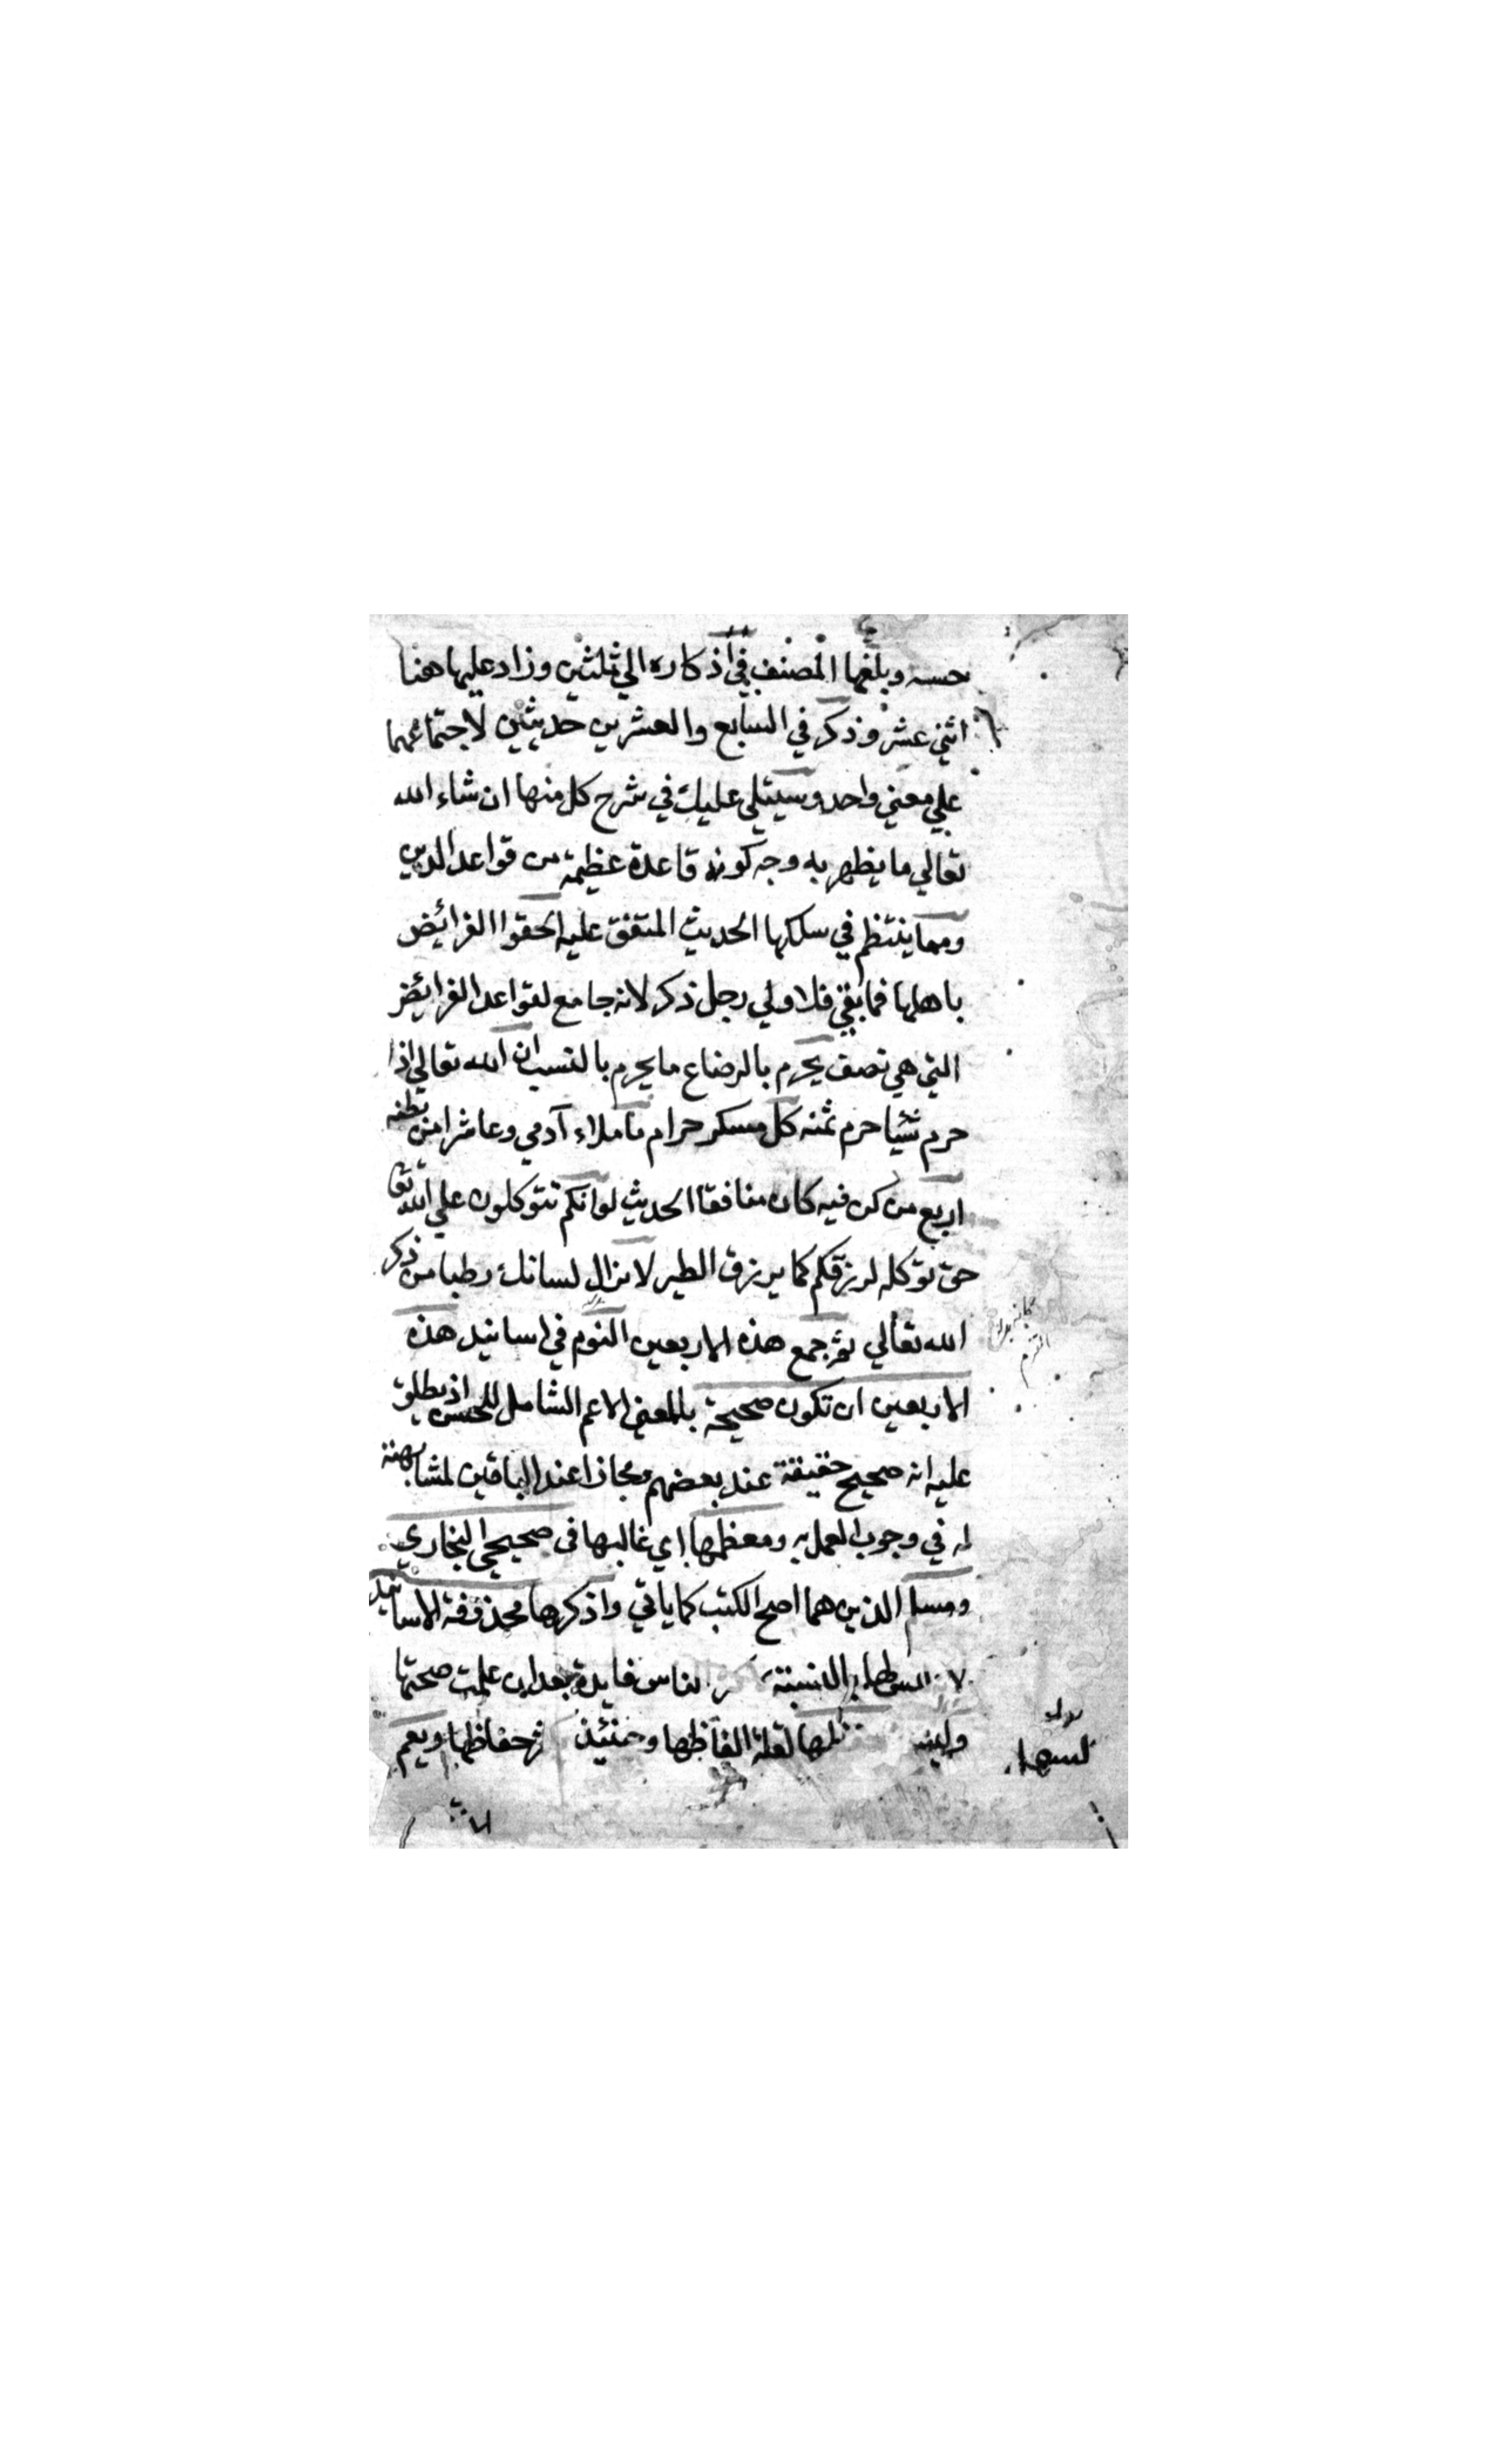 حسه وبلغها المصنف في اذكاره الي ثلثين وزاد عليها هنا
اثني عشر وذكر في السابع والعشرين حديثين لاجتماعهما
علي معني واحد وسيتلي عليك في شرح كل منها ان شاء الله
تعالي ما يظهر به وجه كونه قاعدة عظيمة من قواعد الدين
ومما ينتظم في سلكها الحديث المتفق عليه الحقوا الفرائيض
باهلها فما بقي فلاولي رجل ذكر لانه جامع لقواعد الفرائيض
التي هي نصف يحرم بالرضاع ما يحرم بالنسب ان الله تعالي اذا
حرم شيا حرم ثمنه كل مسكر حرام ما ملاء آدمي وعا شرا من بطنه
اربع من كن فيه كان منافقا الحديث لوانكم تتوكلون علي الله تعا
حق توكله لرزقكم كما يرزق الطير لا يزال لسانك رطبا من ذكر
الله تعالي ثم جمع هذه الاربعين التزم في اسانيد هذه
الاربعين ان تكون صحيحة بالمعني الاعم الشامل للحسن اذ يطلق
عليه انه صحيح حقيقة عند بعضهم ومجازا عند الباقين لمشابهته
له في وجوب العمل به ومعظمها اي غالبها في صحيحي البخاري
ومسلم الذين هما اصح الكتب كما ياتي واذكرها محذوفة الاسانيد
بالنسبة لناس فايدة بعد ان علمت صحتها
لقلة الفاظها وحينئذ حفاظها ويعم
لسهل